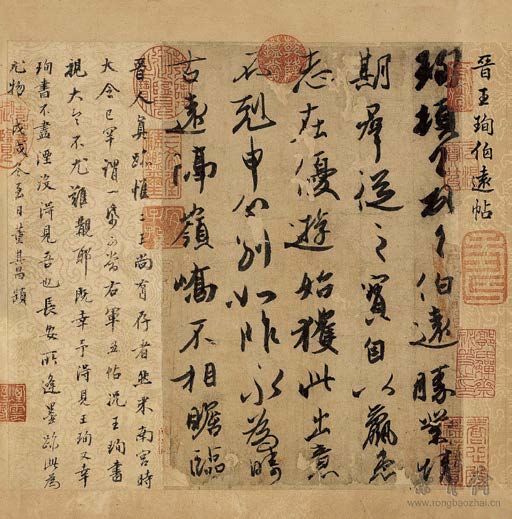 晉王珣伯遠帖
珣頓首頓首伯遠勝業情
期群從之寶自以羸患
志在優遊始獲此出意
不剋申分別如昨永為疇
古遠隔嶺嶠不相瞻臨
晉人真跡惟二王尚有存者然米南宮時
大令已罕謂一紙可當右軍五帖況王珣書
視大令不尤難覯耶既幸予得見王珣又幸
珣書不盡湮沒得見吾也長安所逢墨跡此為
尤物 戊戌冬至日董其昌題
www.rongbaozhai.cn